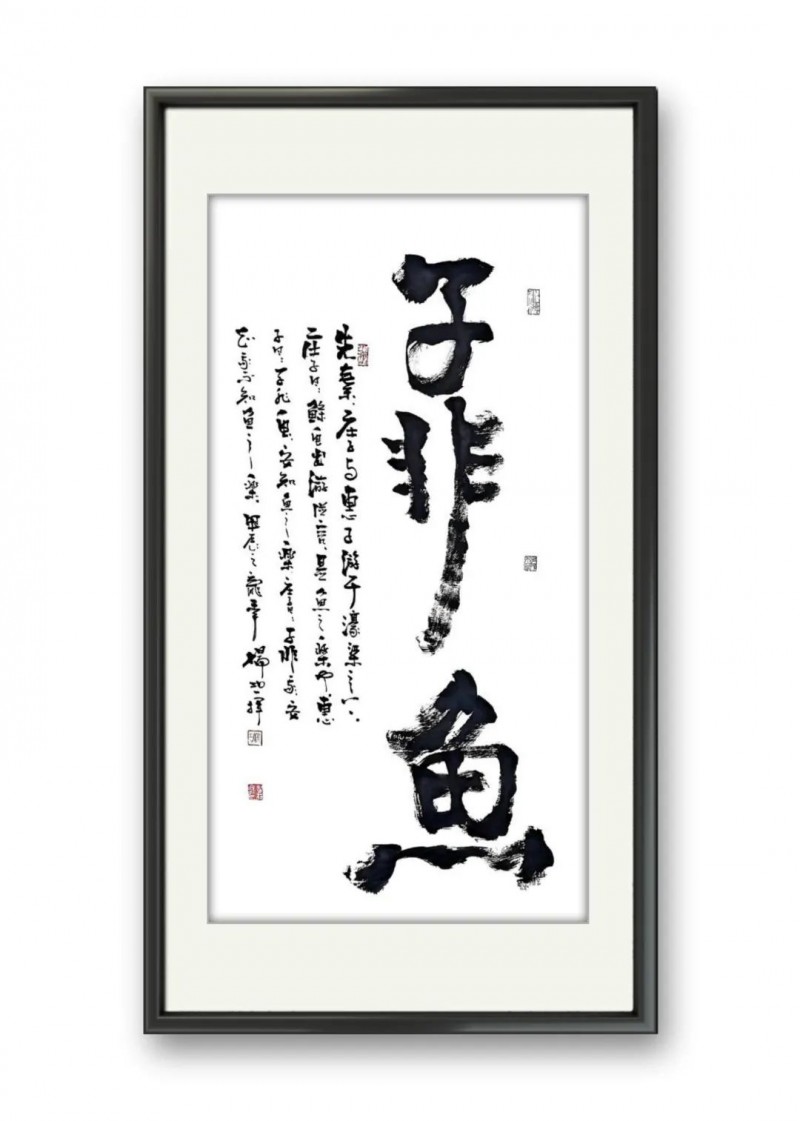 子非鱼
先秦，庄子与惠子游于濠梁之上，
庄子曰：鯈鱼出游從容，是鱼之樂也。惠
子曰：子非鱼，安知鱼之樂。庄曰：子非我，安
知我不知鱼之樂。甲辰之龍年 楊